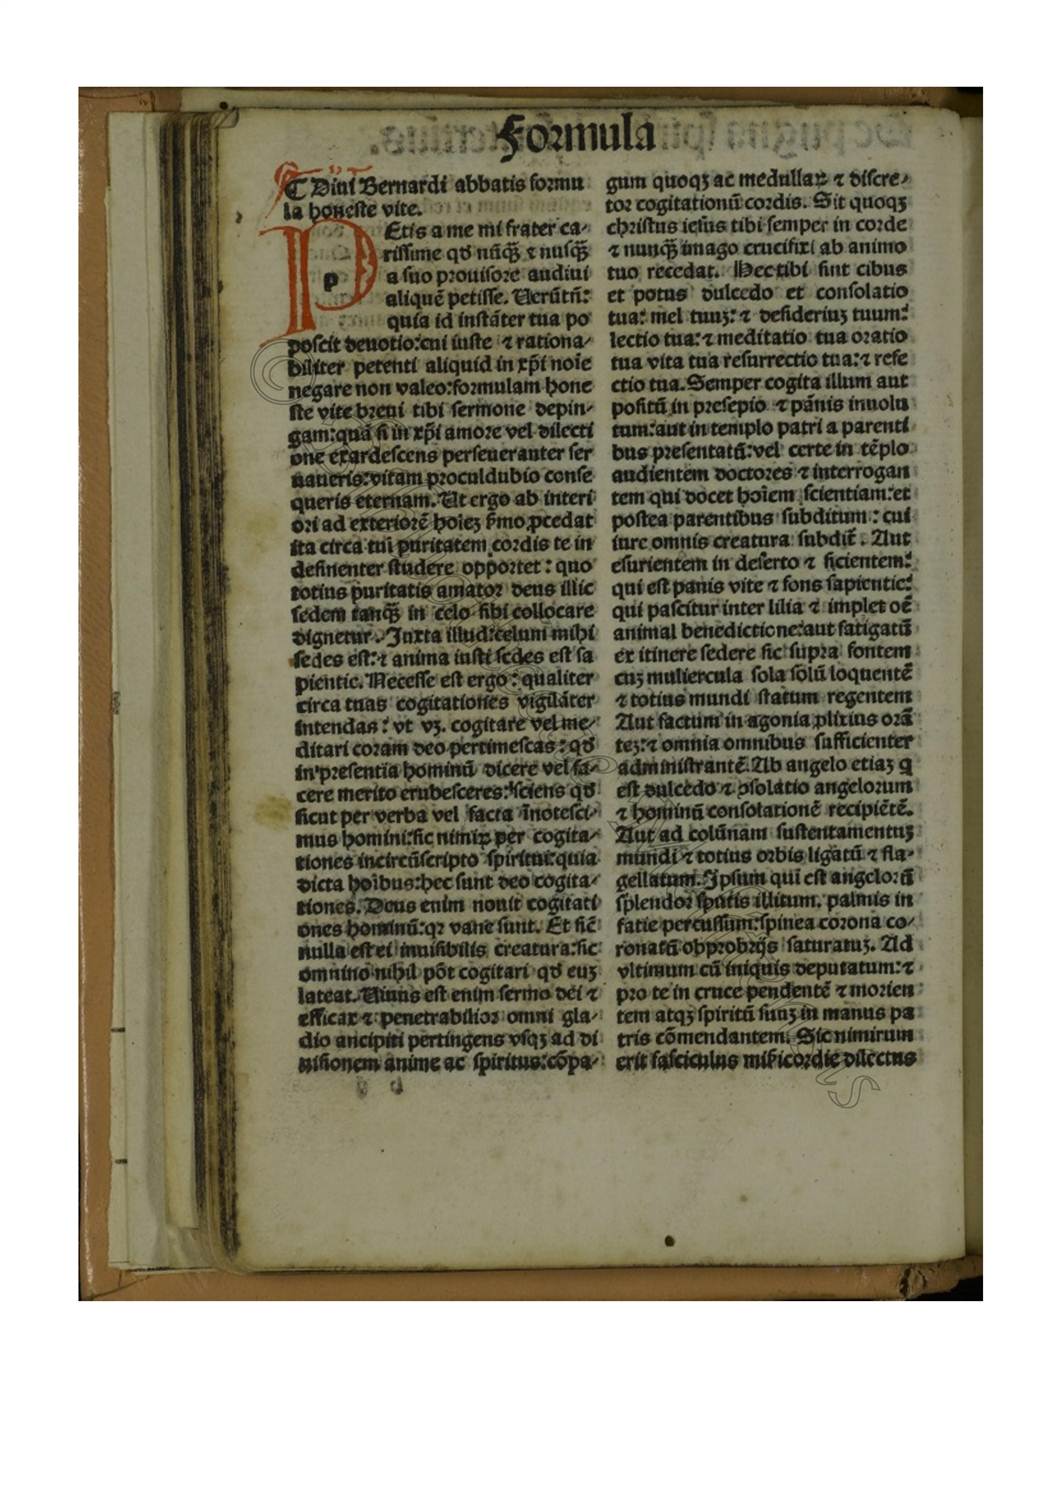 Formula
¶ Diui Bernardi abbatis formu
la honeste vite.
PEtis a me mi frater ca-
rissime qď nūq̄ȝ ⁊ nusq̄ȝ
a suo prouisore audiui
aliquē petisse. Uerūtn̄:
quia id instāter tua po
poscit deuotio:cui iuste ⁊ rationa-
biliter petenti aliquid in xp̄i noīe
negare non valeo:formulam hone
ste vite breui tibi sermone depin-
gam:quā si in xp̄i amore vel dilecti
one exardescens perseueranter ser
uaueris:vitam proculdubio conse
queris eternam. Ut ergo ab interi
ori ad exteriorē hoīeȝ p̄mo ꝓcedat
ita circa tuī puritatem cordis te in
desinenter studere opportet: quo
totius puritatis amator deus illic
sedem tanq̄ȝ in celo sibi collocare
dignetur. Juxta illud:celum mihi
sedes est:⁊ anima iusti sedes est sa
pientie. Necesse est ergo: qualiter
circa tuas cogitationes vigilāter
intendas: vt vȝ. cogitare vel me-
ditari coram deo pertimescas: qď
in presentia hominū dicere vel fa-
cere merito erubesceres: sciens qď
sicut per verba vel facta īnotesci-
mus homini:sic nimiꝝ per cogita-
tiones incircūscripto spiritui:quia
dicta hoībus:hec sunt deo cogita-
tiones. Deus enim nouit cogitati
ones hominū:qꝛ vane sunt. Et sic̄
nulla est ei inuisibilis creatura:sic
omnino nihil pōt cogitari qď euȝ
lateat. Uiuus est enim sermo dei ⁊
efficax ⁊ penetrabilior omni gla-
dio ancipiti pertingens vsqȝ ad di
uisionem anime ac spiritus:cōpa-
gum quoqȝ ac medullaꝝ ⁊ discre-
tor cogitationū cordis. Sit quoqȝ
christus iesus tibi semper in corde
⁊ nunq̄ȝ imago crucifixi ab animo
tuo recedat. Hec tibi sint cibus
et potus dulcedo et consolatio
tua: mel tuuȝ: ⁊ desideriuȝ tuum:
lectio tua: ⁊ meditatio tua oratio
tua vita tua resurrectio tua:⁊ refe
ctio tua. Semper cogita illum aut
positū in presepio ⁊ pānis inuolu
tum:aut in templo patri a parenti
bus presentatū:vel certe in tēplo
audientem doctores ⁊ interrogan
tem qui docet hoīem scientiam:et
postea parentibus subditum: cui
iure omnis creatura subdit̄. Aut
esurientem in deserto ⁊ sicientem:
qui est panis vite ⁊ fons sapientie:
qui pascitur inter lilia ⁊ implet oē
animal benedictione:aut fatigatū
ex itinere sedere sic supra fontem
cuȝ muliercula sola solū loquentē
⁊ totius mundi statum regentem
Aut factum in agonia ꝓlixius orā
teȝ:⁊ omnia omnibus sufficienter
administrantē. Ab angelo etiaȝ q
est dulcedo ⁊ ↄsolatio angelorum
⁊ hominū consolationē recipiētē.
Aut ad colūnam sustentamentuȝ
mundi ⁊ totius orbis ligatū ⁊ fla-
gellatum. Ipsum qui est angeloꝝ
splendor sputis illitum. palmis in
fatie percussum:spinea corona co-
ronatū obprobrijs saturatuȝ. Ad
vltimum cū iniquis deputatum:⁊
pro te in cruce pendentē ⁊ morien
tem atqȝ spiritū suuȝ in manus pa
tris cōmendantem. Sic nimirum
erit fasciculus misericordie dilectus